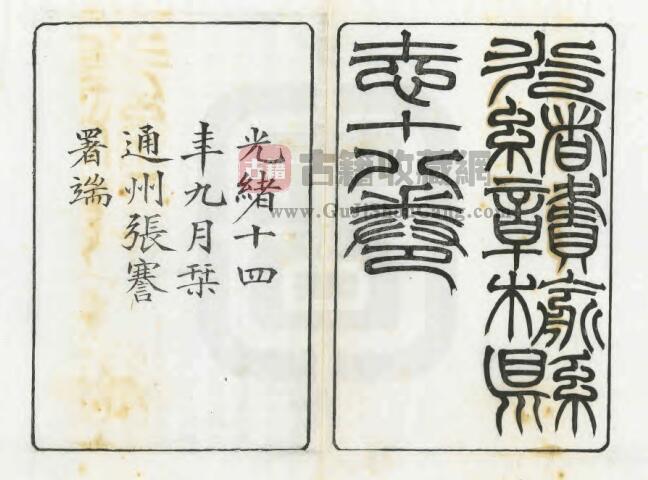 光緒贛榆縣
志十八卷
光緒十四
年九月栞
通州張謇
署端
古籍
古籍收藏網
www.GuJiShouCang.com